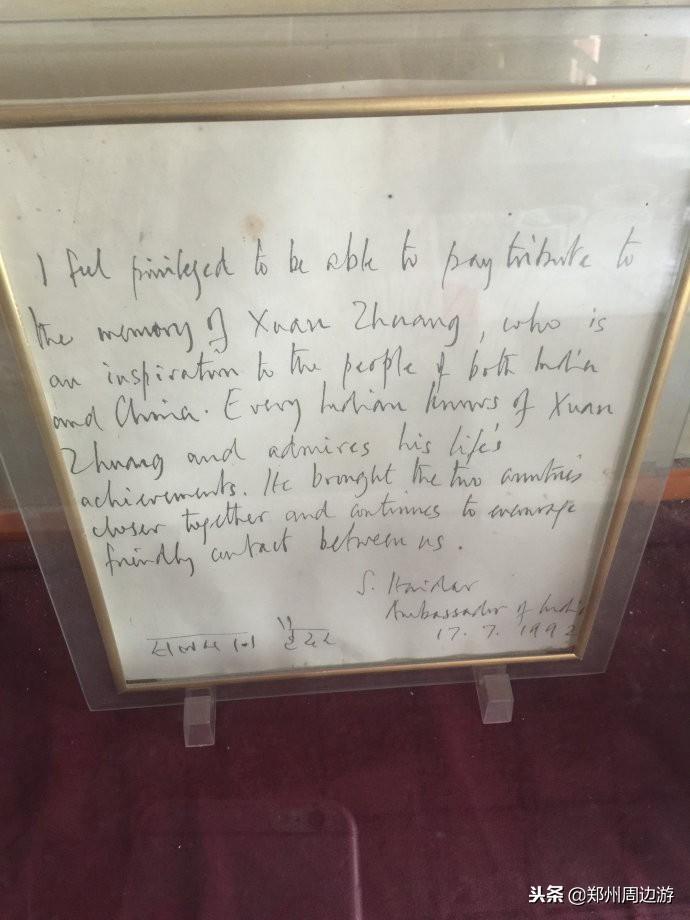 I feel privileged to be able to pay tribute to
the memory of Xuan Zhuang, who is
an inspiration to the people of both India
and China. Every Indian knows of Xuan
Zhuang and admires his life's
achievements. He brought the two countries
closer together and continues to encourage
friendly contact between us.
S. Haidar
Ambassador of India
17.7.1992
头条 @郑州周边游